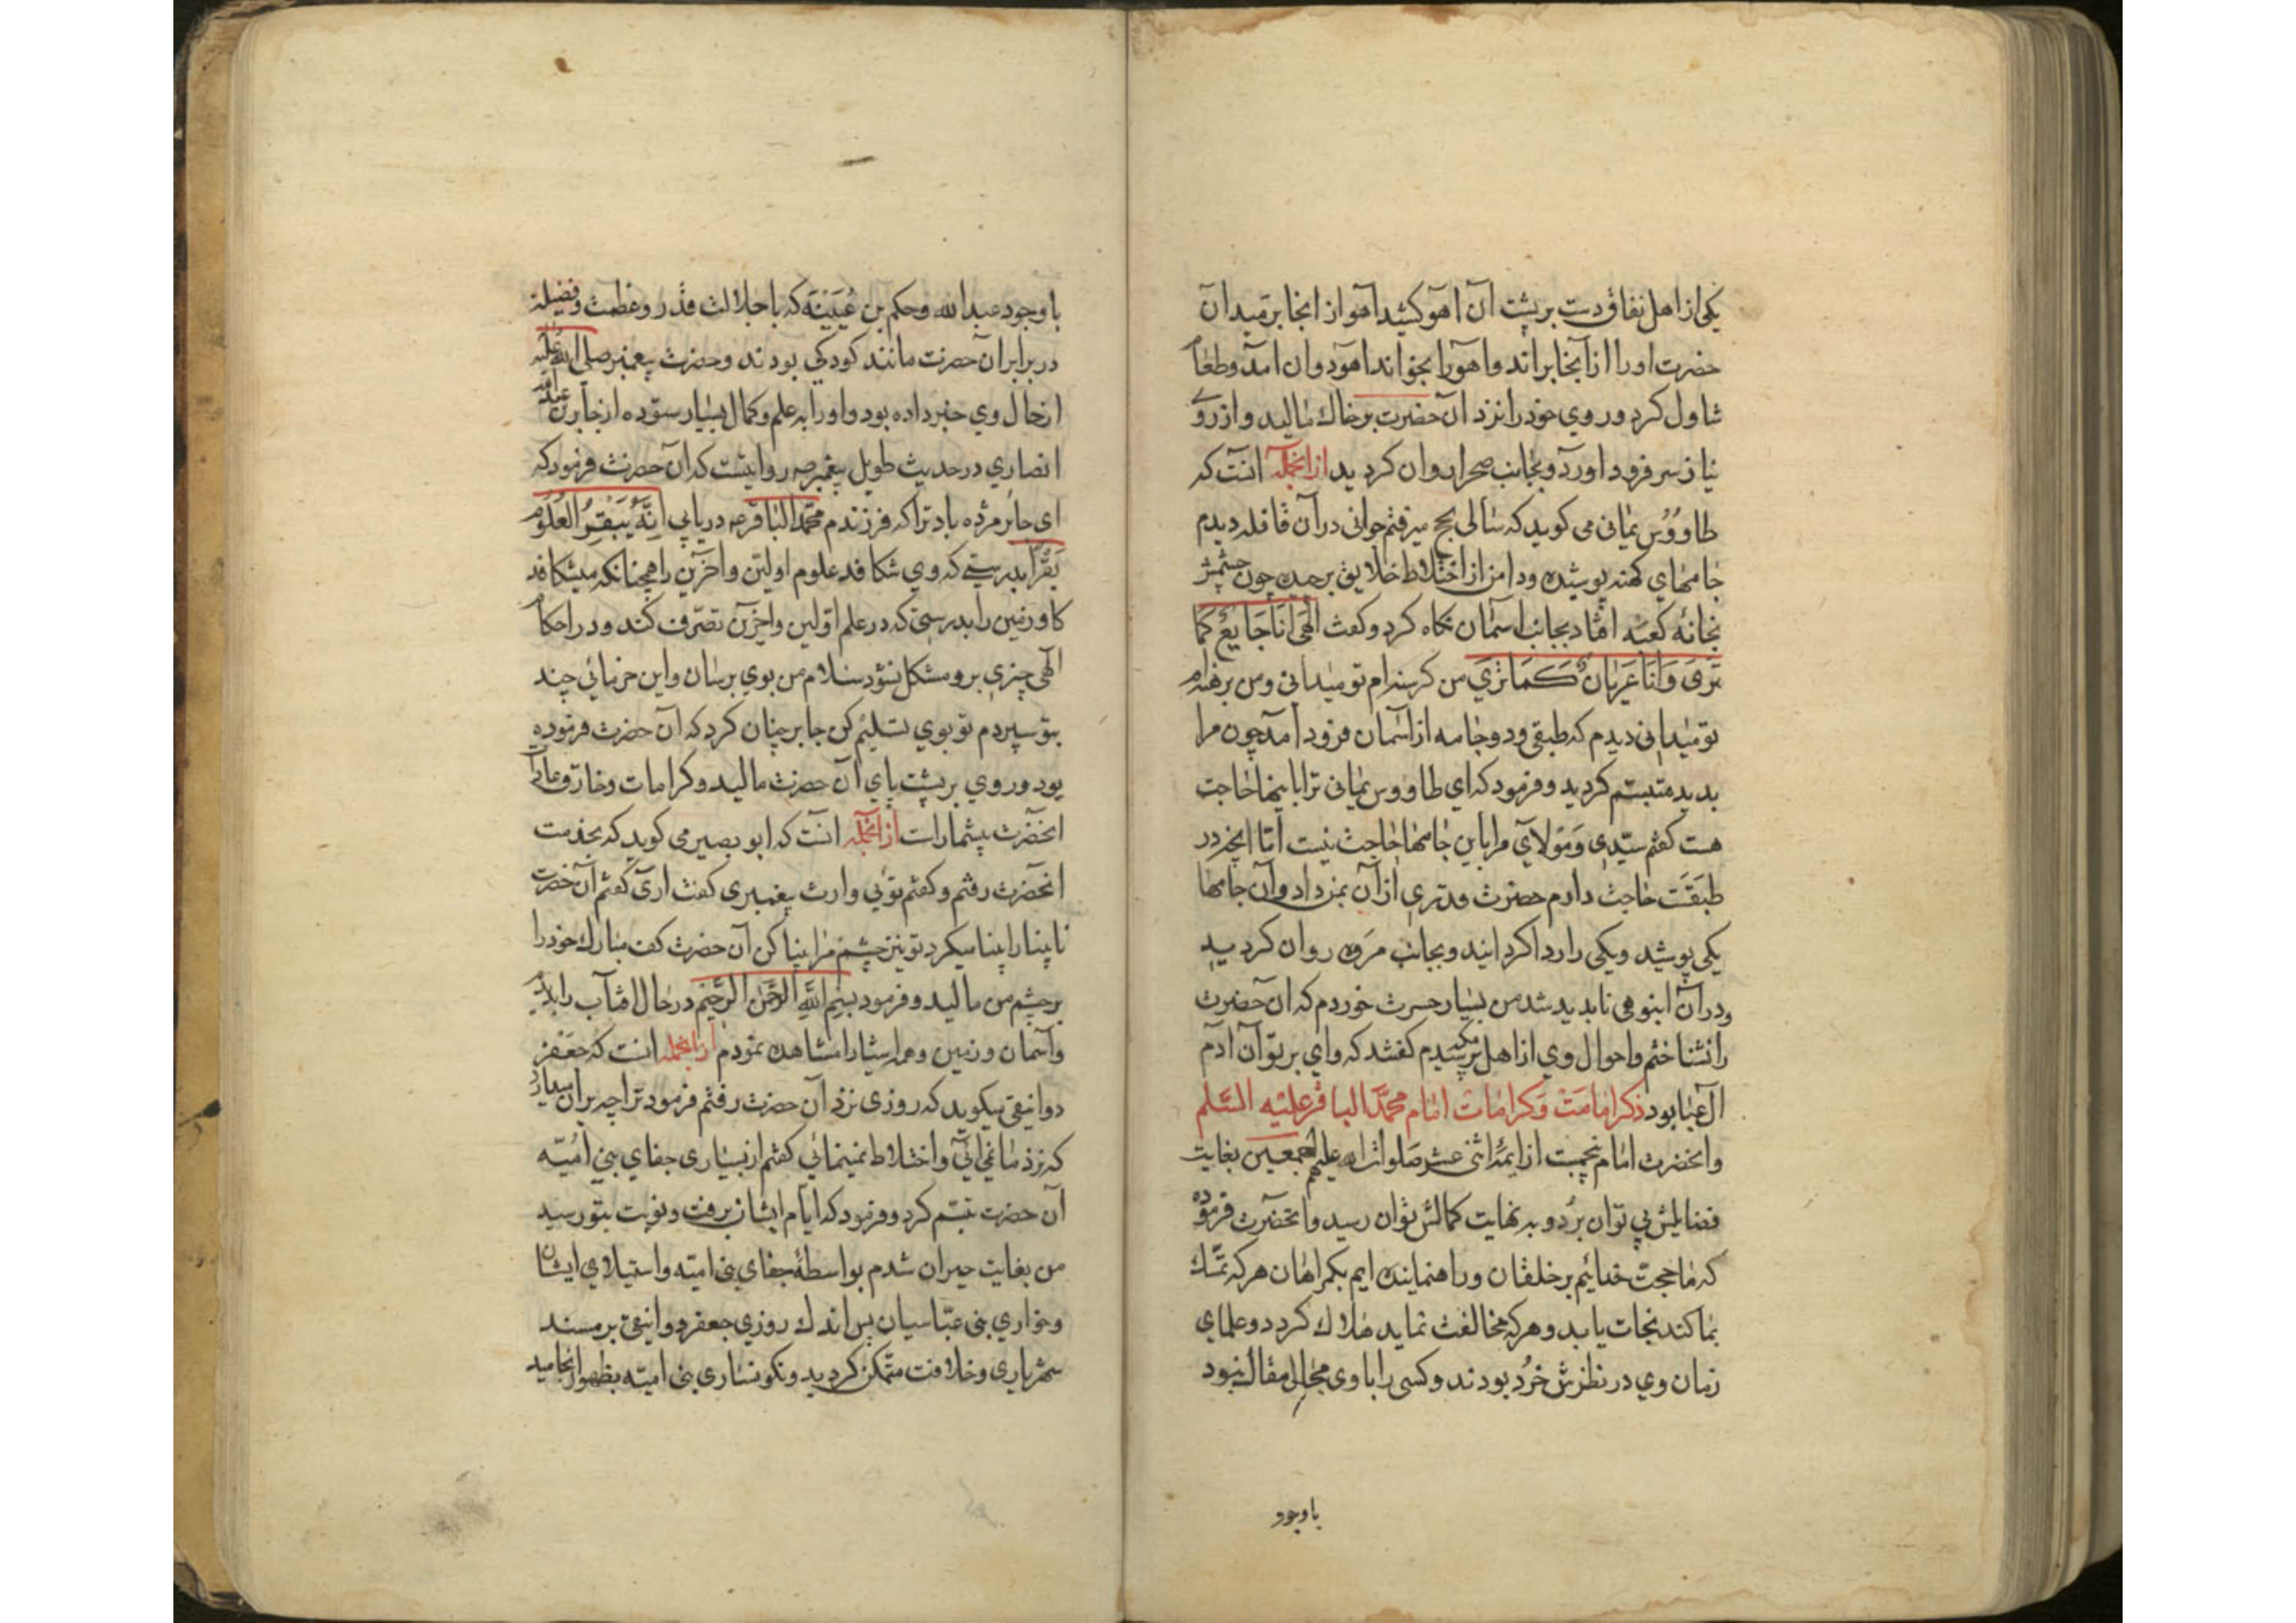 یکی از اهل نفاق دست بر پشت آن آهو کشید آهو از انجا برمید آن
حضرت او را از آنجا براند و آهو را بخواند آهو دوان آمد و طعام
تناول کرد و روی خود را نزد آن حضرت بر خاک مالید و از روی
نیاز سر فرود آورد و بجانب صحرا روان کردید از انجمله انست که
طاووس یمانی می کوید که سالی بحج میرفتم جوانی در آن قافله دیدم
جامهای کهنه پوشیده و دامن از اختلاط خلایق برچیده چون چشمش
بخانهٔ کعبه افتاد بجانب اسمان نکاه کرد و کفت الهی انا جایع کما
تری و انا عریان کما تری من کرسنه ام تو میدانی و من برهنه ام
تو میدانی دیدم که طبقی و دو جامه از اسمان فرود آمد چون مرا
بدید متبسم کردید و فرمود که ای طاووس یمانی ترا باینها حاجت
هست کفتم سیدی و مولای مرا باین جامها حاجت نیست اما انچه در
طبقست حاجت دارم حضرت قدری از آن بمن داد و آن جامها
یکی پوشید و یکی را ردا کردانید و بجانب مروه روان کردید
و در آن انبوهی ناپدید شد من بسیار حسرت خوردم که ان حضرت
را نشناختم و احوال وی از اهل مکه پرسیدم کفتند که وای بر تو آن آدم
آل عبا بود ذکر امامت و کرامات امام محمد الباقر علیه السلم
و انحضرت امام پنجمست از ایمهٔ اثنی عشر صلوات الله علیهم اجمعین بغایت
فضایلش پی توان برد و به نهایت کمالش توان رسید و انحضرت فرموده
که ما حجت خدائیم بر خلقان و راهنماینده ایم بکمراهان هر که تمسک
بما کند نجات یابد و هر که مخالفت نماید هلاک کردد و علمای
زمان وی در نظرش خرد بودند و کسی را با وی مجال مقال نبود
باوجود
باوجود عبدالله و حکم بن عیینه که با جلالت قدر و عظمت و فضیلة
در برابر ان حضرت مانند کودکی بودند و حضرت پیغمبر صلی الله علیه
از حال وی خبر داده بود و او را به علم و کمال بسیار ستوده از جابر بن عبدالله
انصاری در حدیث طویل پیغمبر ص روایتست که ان حضرت فرمود که
ای جابر مژده باد ترا که فرزندم محمد الباقر ص دریابی انه یبقر العلوم
بقرا بدرستی که وی شکافد علوم اولین و آخرین را همچنانکه میشکافد
کاو زمین را بدرستی که در علم اولین و اخرین تصرف کند و در احکام
الهی چیزی برو مشکل نشود سلام من بوی برسان و این خرمائی چند
بتو سپردم تو بوی تسلیم کن جابر چنان کرد که ان حضرت فرموده
بود و روی بر پشت پای ان حضرت مالید و کرامات و خارق عادات
انحضرت بیشمارات از انجمله انست که ابو بصیر می کوید که بخدمت
انحضرت رفتم و کفتم توئی وارث پیغمبری کفت اری کفتم آن حضرت
نابینا را بینا میکرد تو نیز چشم مرا بینا کن آن حضرت کف مبارک خود را
بر چشم من مالید و فرمود بسم الله الرحمن الرحیم در حال افتاب را بدیدم
و آسمان و زمین و همه اشیا را مشاهده نمودم از انجمله انست که جعفر
دوانیقی میکوید که روزی نزد آن حضرت رفتم فرمود ترا چه بر ان میدارد
که نزد ما نمی آئی و اختلاط نمینمائی کفتم از بسیاری جفای بنی امیه
آن حضرت تبسم کرد و فرمود که ایام ایشان برفت و نوبت بتو رسید
من بغایت حیران شدم بواسطهٔ جفای بنی امیه و استیلای ایشان
و خواری بنی عباسیان پس اندک روزی جعفر دوانیقی بر مسند
شهریاری و خلافت متمکن کردید و نکونساری بنی امیه بظهور انجامید